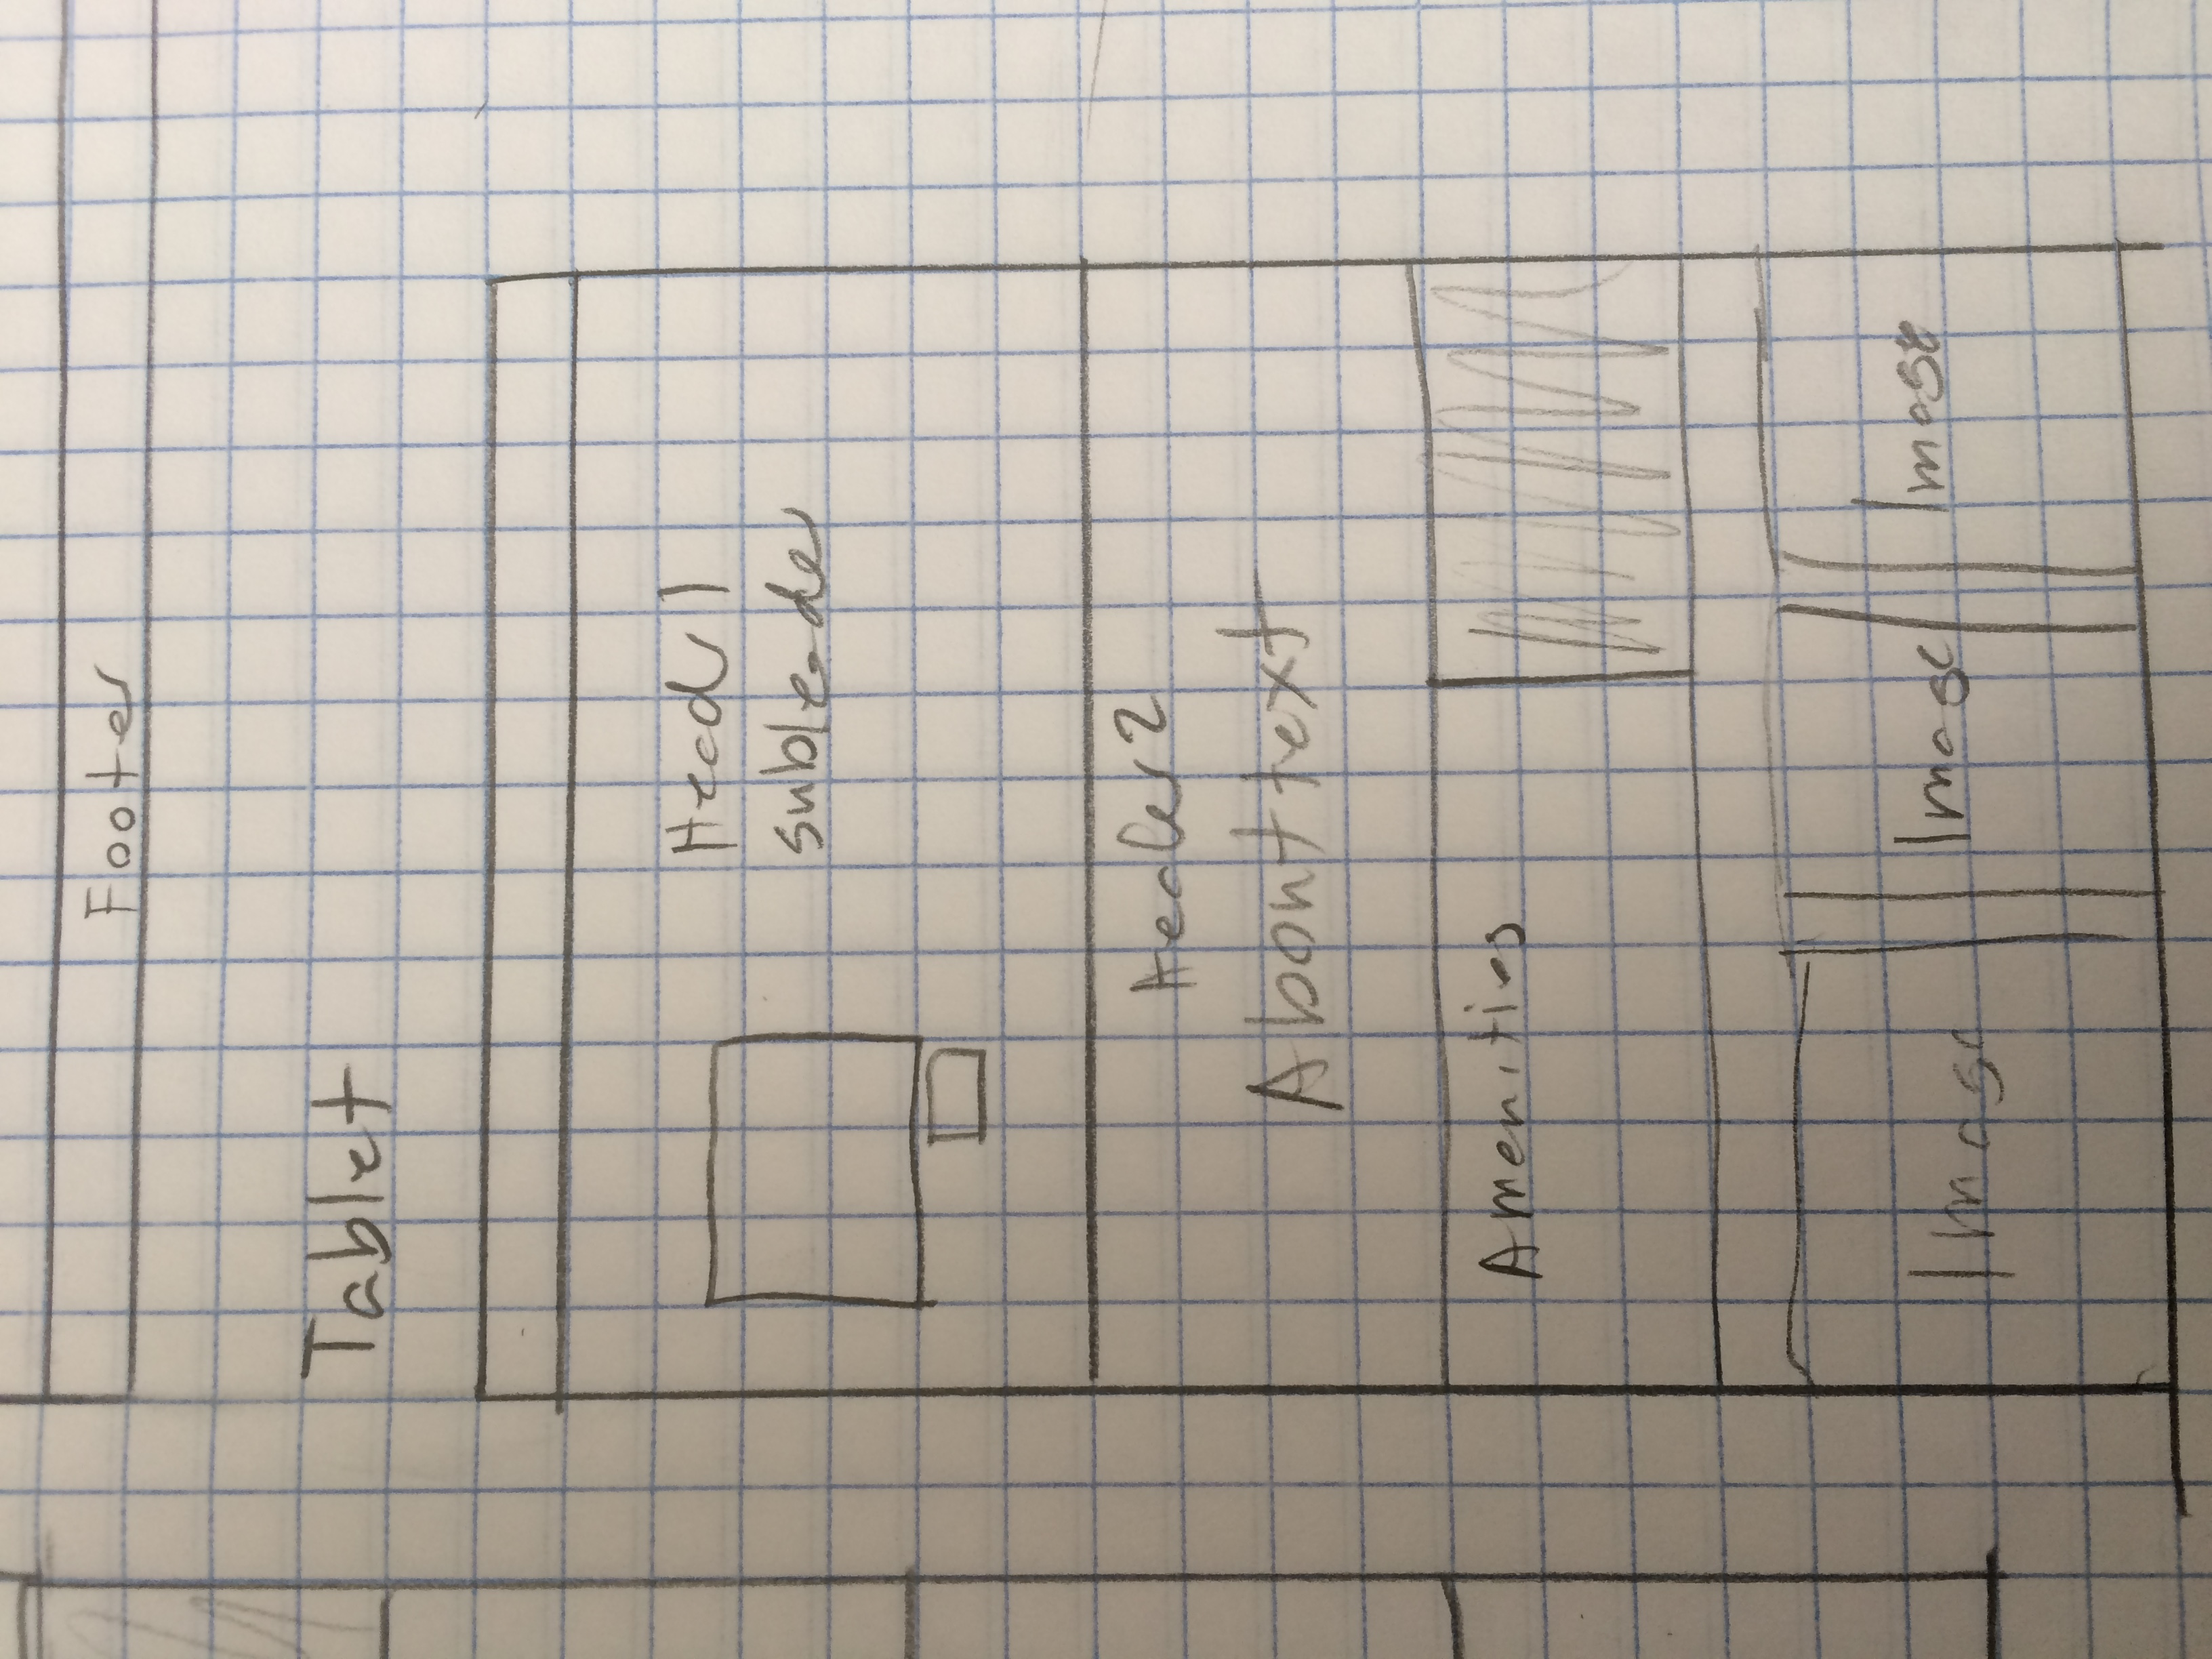 Footer
Tablet
Header 1
subheader
Header 2
About text
Amenities
Image Image Image